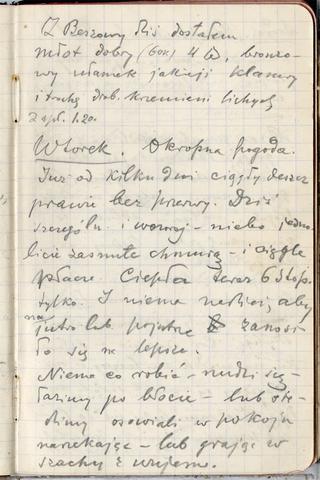 Z Beszowy dziś dostałem
młot dobry (bok) 4 
wy ułamek jakiejś klamry
i trochę drob. krzemieni lichych
Zapł. 1.20.
Wtorek. Okropna pogoda.
Już od kilku dni ciągły deszcz
prawie bez przerwy. Dziś
szczególn. i wczoraj – niebo jedno-
licie zasnute chmurą – i ciągle
płacze. Ciepła teraz 6 stop.
tylko. I niema nadziei, aby
na jutro lub pojutrze zanosi-
ło się na lepsze.
Niema co robić – nudzi się –
łazimy po błocie – lub sie-
dzimy osowiali w pokoju
narzekając – lub grając w
szachy z wujem.